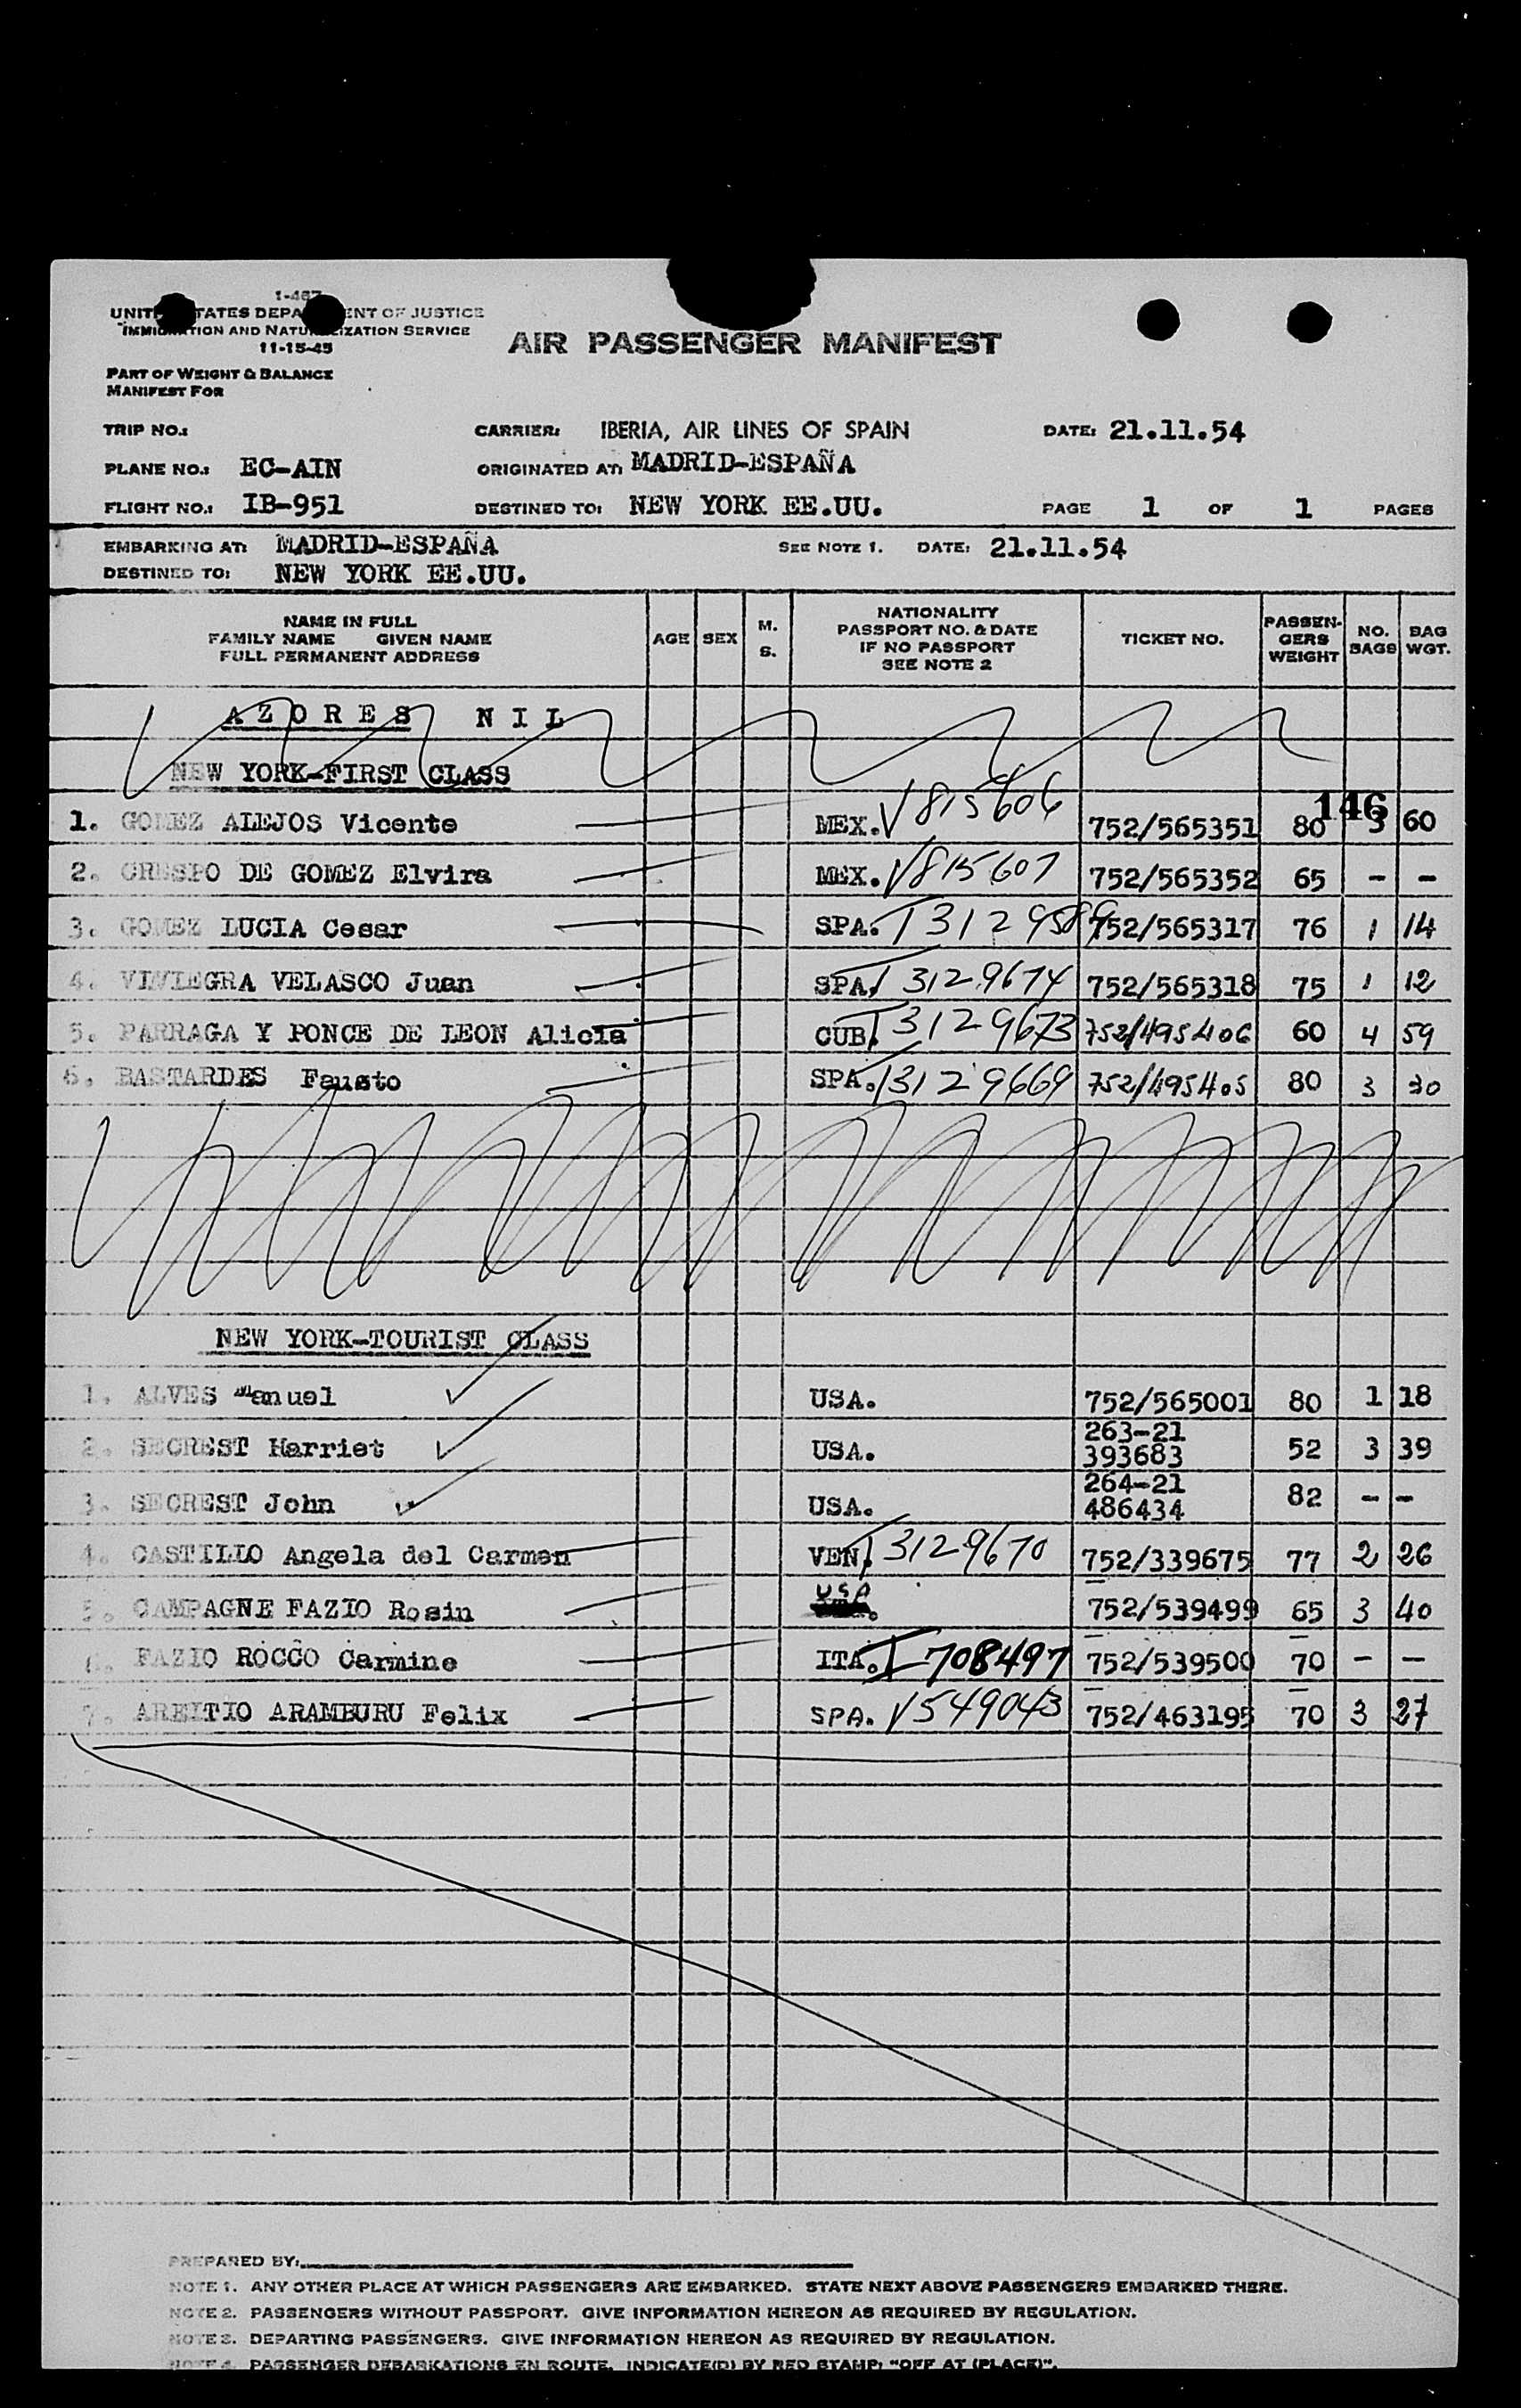 I-467
UNITED STATES DEPARTMENT OF JUSTICE
IMMIGRATION AND NATURALIZATION SERVICE
11-15-45
AIR PASSENGER MANIFEST
PART OF WEIGHT & BALANCE
MANIFEST FOR
TRIP NO.: CARRIER: IBERIA, AIR LINES OF SPAIN DATE: 21.11.54
PLANE NO.: EC-AIN ORIGINATED AT: MADRID-ESPAÑA
FLIGHT NO.: IB-951 DESTINED TO: NEW YORK EE.UU. PAGE 1 OF 1 PAGES
EMBARKING AT: MADRID-ESPAÑA SEE NOTE 1. DATE: 21.11.54
DESTINED TO: NEW YORK EE.UU.
NAME IN FULL
FAMILY NAME GIVEN NAME
FULL PERMANENT ADDRESS
AGE SEX M. S.
NATIONALITY
PASSPORT NO. & DATE
IF NO PASSPORT
SEE NOTE 2
TICKET NO.
PASSENGERS WEIGHT
NO. BAGS
BAG WGT.
AZORES NIL
NEW YORK-FIRST CLASS
146
1. GOMEZ ALEJOS Vicente MEX. V815606 752/565351 80 3 60
2. CRESPO DE GOMEZ Elvira MEX. V815607 752/565352 65 - -
3. GOMEZ LUCIA Cesar SPA. T3129589 752/565317 76 1 14
4. VIVIEGRA VELASCO Juan SPA. T3129674 752/565318 75 1 12
5. PARRAGA Y PONCE DE LEON Alicia CUB. T3129673 752/495406 60 4 59
6. BASTARDES Fausto SPA. T3129669 752/495405 80 3 30
NEW YORK-TOURIST CLASS
1. ALVES Manuel USA. 752/565001 80 1 18
2. SECREST Harriet USA. 263-21 393683 52 3 39
3. SECREST John USA. 264-21 486434 82 - -
4. CASTILLO Angela del Carmen VEN. T3129670 752/339675 77 2 26
5. CAMPAGNE FAZIO Rosin USA 752/539499 65 3 40
6. FAZIO ROCCO Carmine ITA. I708497 752/539500 70 - -
7. AREITIO ARAMBURU Felix SPA. V549043 752/463195 70 3 27
PREPARED BY:
NOTE 1. ANY OTHER PLACE AT WHICH PASSENGERS ARE EMBARKED. STATE NEXT ABOVE PASSENGERS EMBARKED THERE.
NOTE 2. PASSENGERS WITHOUT PASSPORT. GIVE INFORMATION HEREON AS REQUIRED BY REGULATION.
NOTE 3. DEPARTING PASSENGERS. GIVE INFORMATION HEREON AS REQUIRED BY REGULATION.
NOTE 4. PASSENGER DEBARKATIONS EN ROUTE. INDICATE(D) BY RED STAMP: "OFF AT (PLACE)".